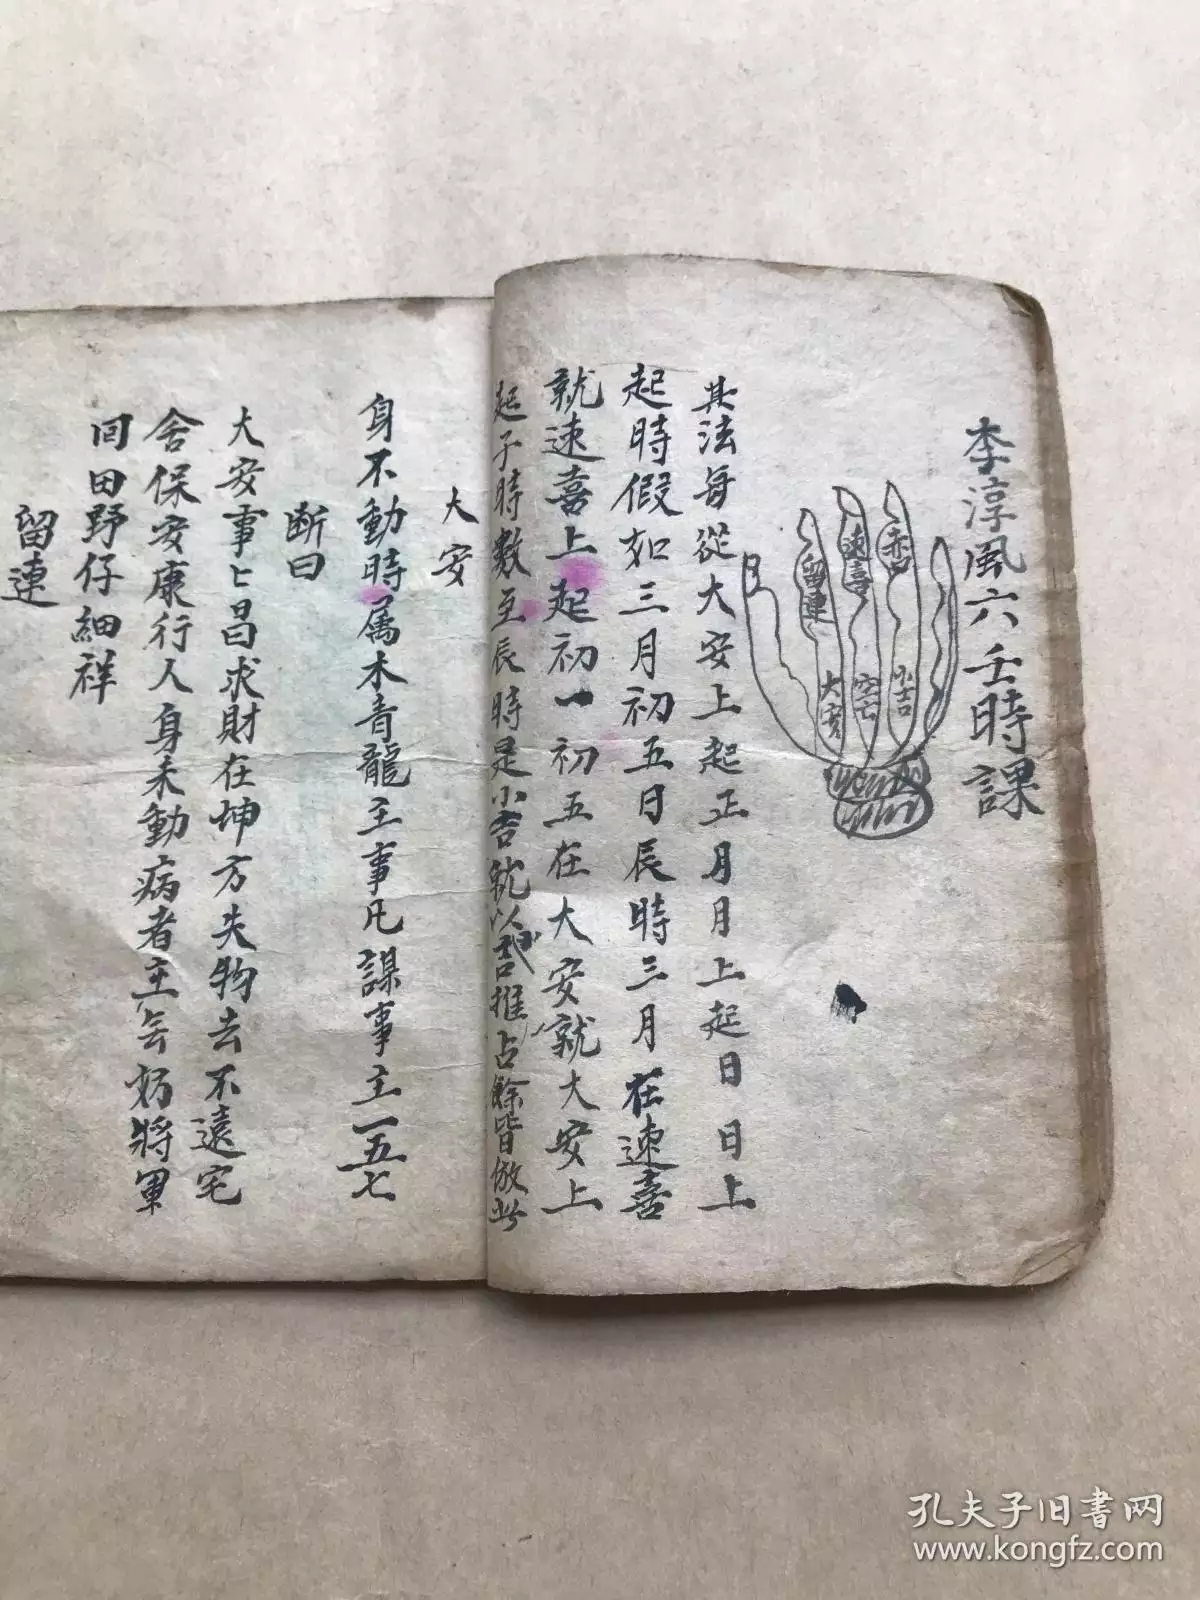 李淳風六壬時課
留連
速喜
赤口
大安
空亡
小吉
其法每從大安上起正月月上起日日上
起時假如三月初五日辰時三月在速喜
就速喜上起初一初五在大安就大安上
起子時數至辰時是小吉就以推占餘皆倣此
大安
身不動時属木青龍主事凡謀事主一五七
断曰
大安事〻昌求財在坤方失物去不遠宅
舍保安康行人身未動病者主無妨將軍
囘田野仔細祥
留連
孔夫子旧书网
www.kongfz.com